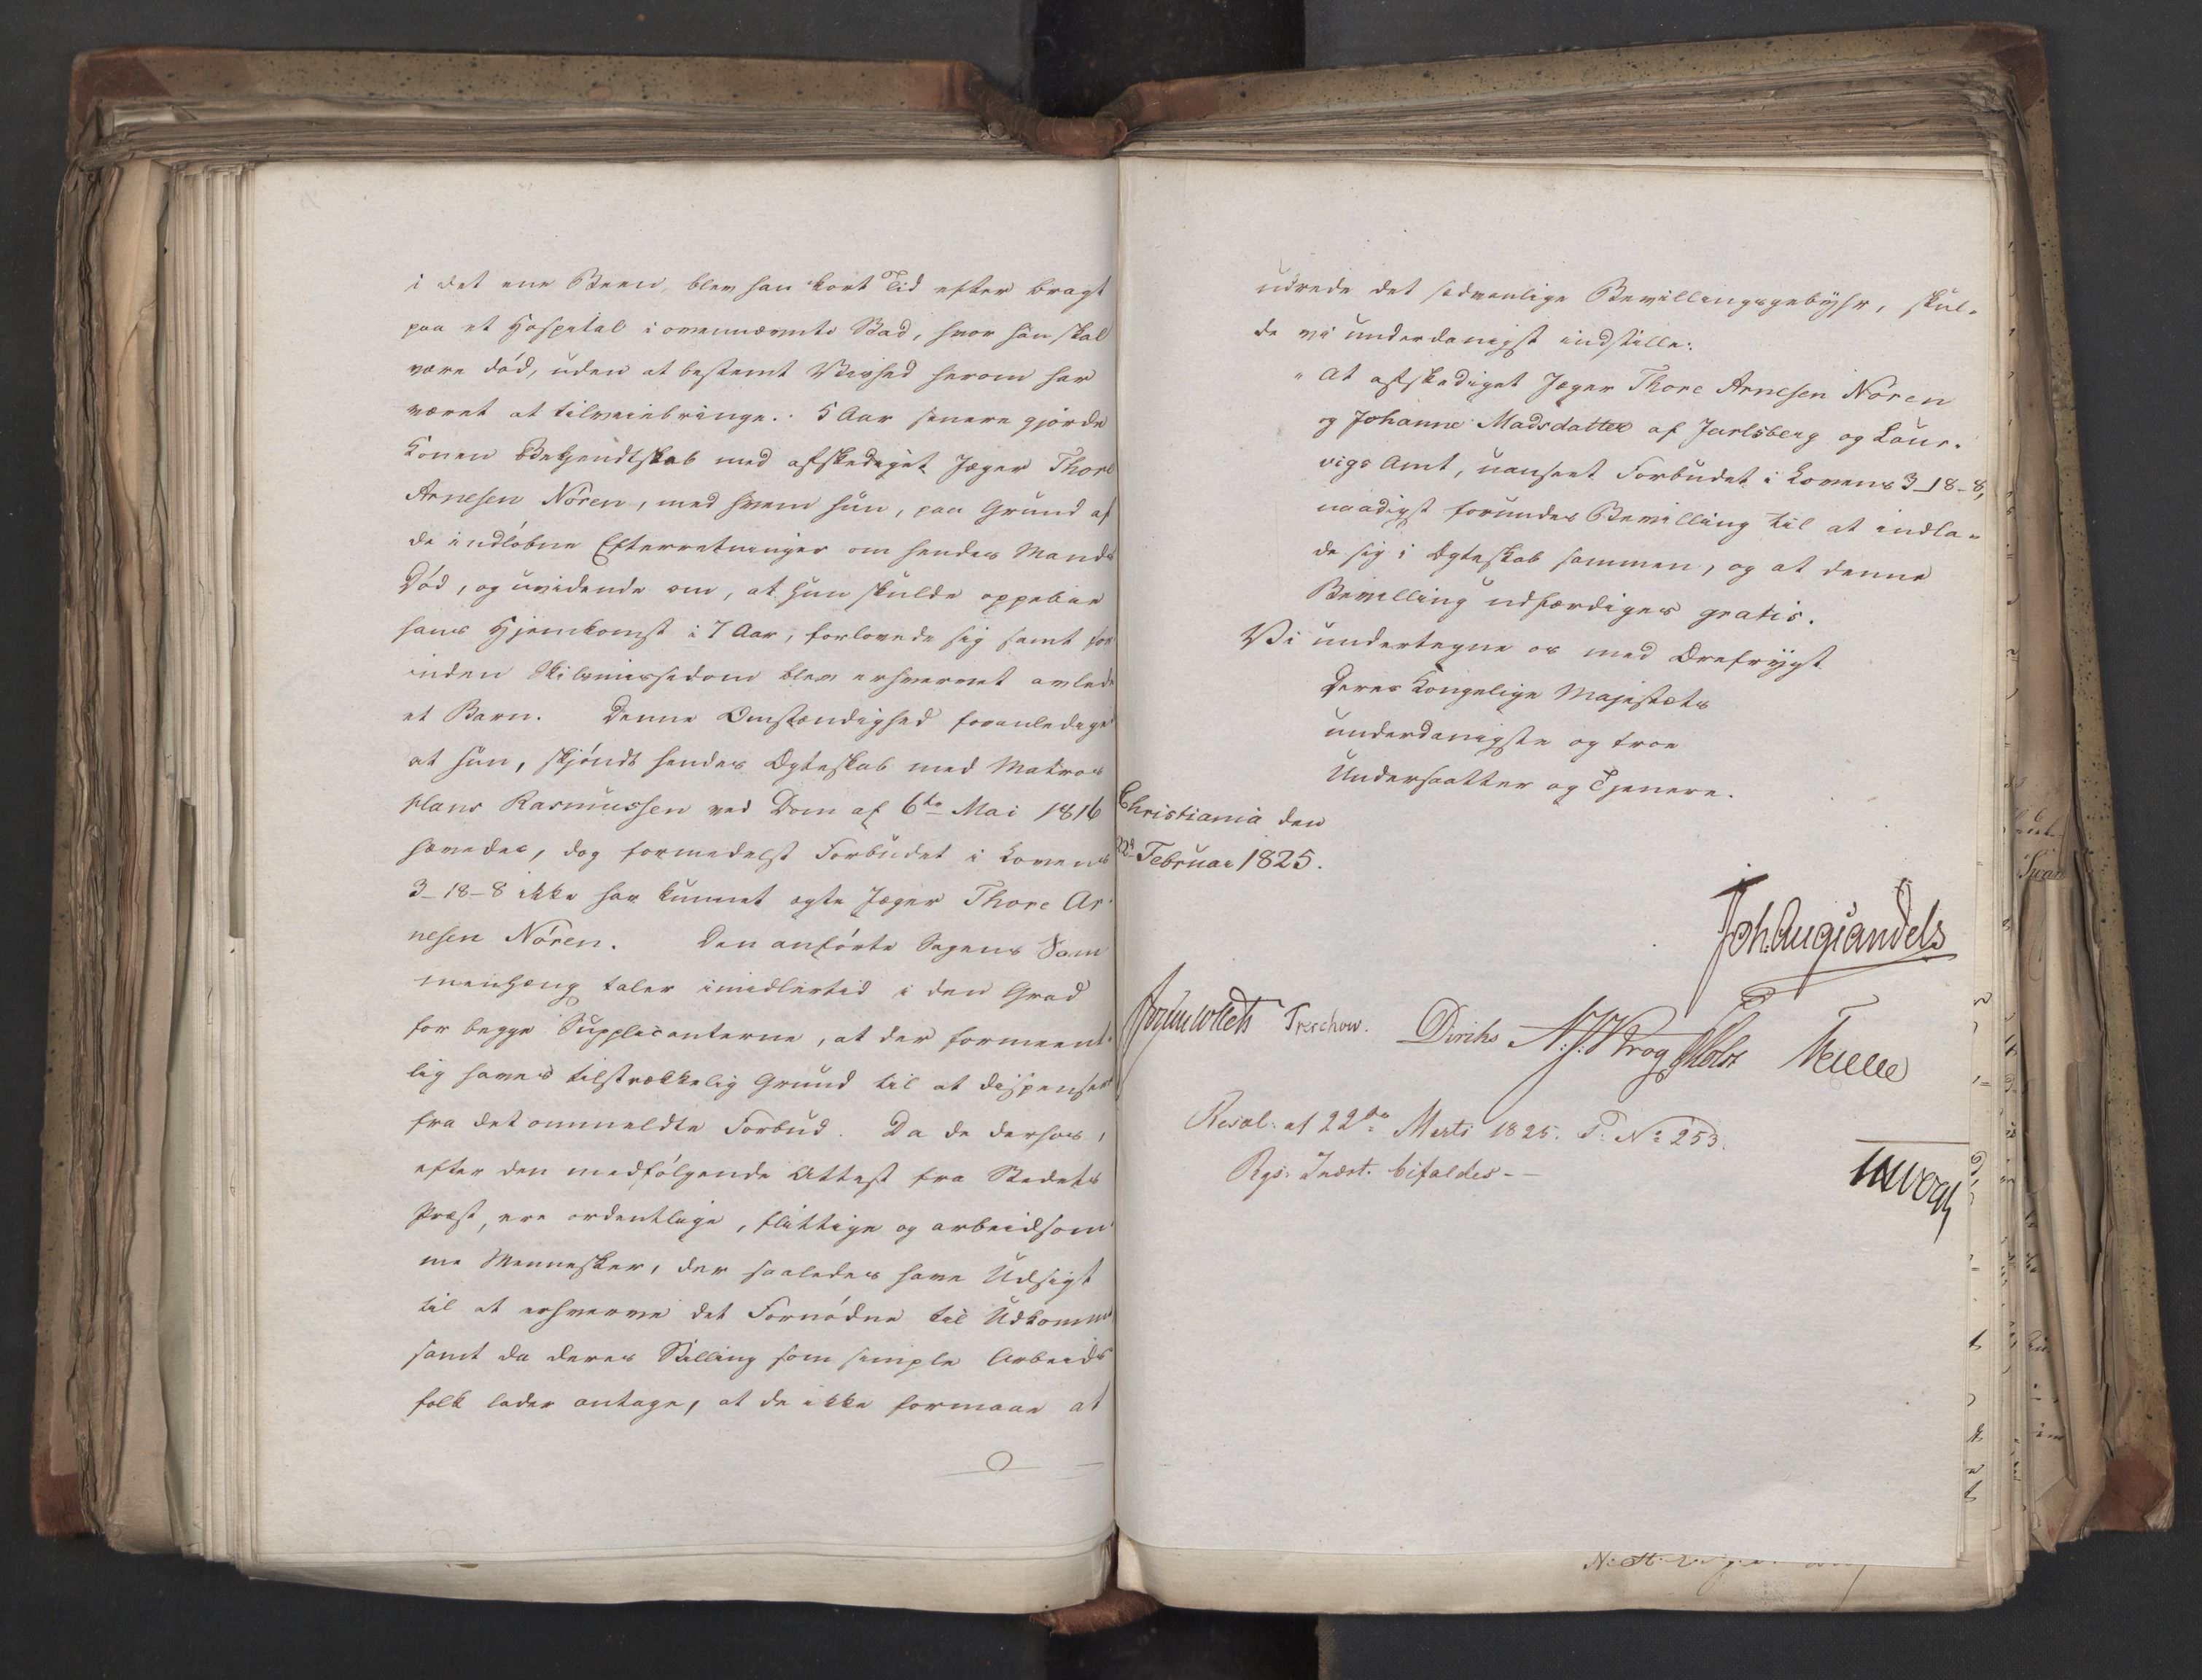 i det ene Been, blev han kort Tid efter bragt
paa et Hospital i ovennævnte Stad, hvor han skal
være død, uden at bestemt Vished herom har
været at tilveiebringe. 5 Aar senere gjorde
Konen Bekjendtskab med afskediget Jæger Thore
Arnesen Nøren, med hvem hun, paa Grund af
de indløbne Efterretninger om hendes Mands
Død, og uvidende om, at hun skulde oppebie
hans Hjemkomst i 7 Aar, forlovede sig samt for
inden Skilsmissedom blev erhvervet avlede
et Barn. Denne Omstændighed foranlediger
at hun, skjøndt hendes Ægteskab med Matros
Hans Rasmussen ved Dom af 6te Mai 1816
hævedes, dog formedelst Forbudet i Lovens
3-18-8 ikke har kunnet ægte Jæger Thore Ar
nesen Nøren. Den anførte Sagens Sam
menhæng taler imidlertid i den Grad
for begge Supplicanterne, at der formeent
lig haves tilstrækkelig Grund til at dispensere
fra det ommeldte Forbud. Da de derhos,
efter den medfølgende Attest fra Stedets
Præst, ere ordentlige, flittige og arbeidsom
me Mennesker, der saaledes have Udsigt
til at erhverve det Fornødne til Udkomme
samt da deres Stilling som simple Arbeids
folk lader antage, at de ikke formaae at
udrede det sædvanlige Bevillingsgebyhr, skul-
de vi underdanigst indstille:
" at afskediget Jæger Thore Arnesen Nøren
og Johanne Madsdatter af Jarlsberg og Laur-
vigs Amt, uanseet Forbudet i Lovens 3-18-8,
naadigst forundes Bevilling til at indla-
de sig i Ægteskab sammen, og at denne
Bevilling udfærdiges gratis.
Vi undertegne os med Ærefrygt
Deres Kongelige Majestæts
underdanigste og troe
Undersaatter og Tjenere.
Christiania den
Februar 1825.
Joh. Aug. Sandels
Jonas Collett Treschow. Diriks N. J. Krog Holst
Resol. af 22de Marts 1825. P. No 253.
Rgs. Indst. bifaldes.